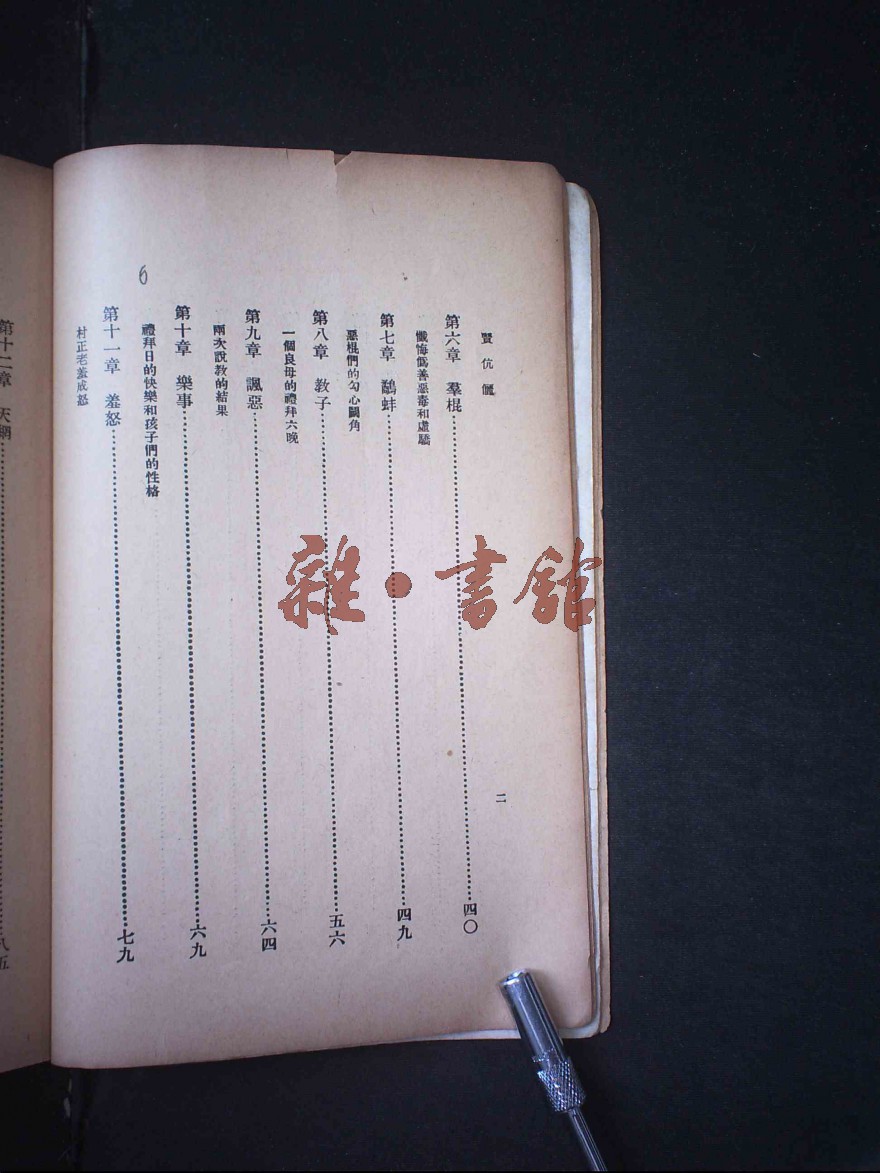 賢伉儷
二
第六章 羣棍……四〇
懺悔僞善惡毒和虛驕
第七章 鷸蚌……四九
惡棍們的勾心鬭角
第八章 教子……五六
一個良母的禮拜六晚
第九章 諷惡……六四
兩次說教的結果
第十章 樂事……六九
禮拜日的快樂和孩子們的性格
第十一章 羞怒……七九
村正老羞成怒
6
第十二章 天網……八五
雜・書館